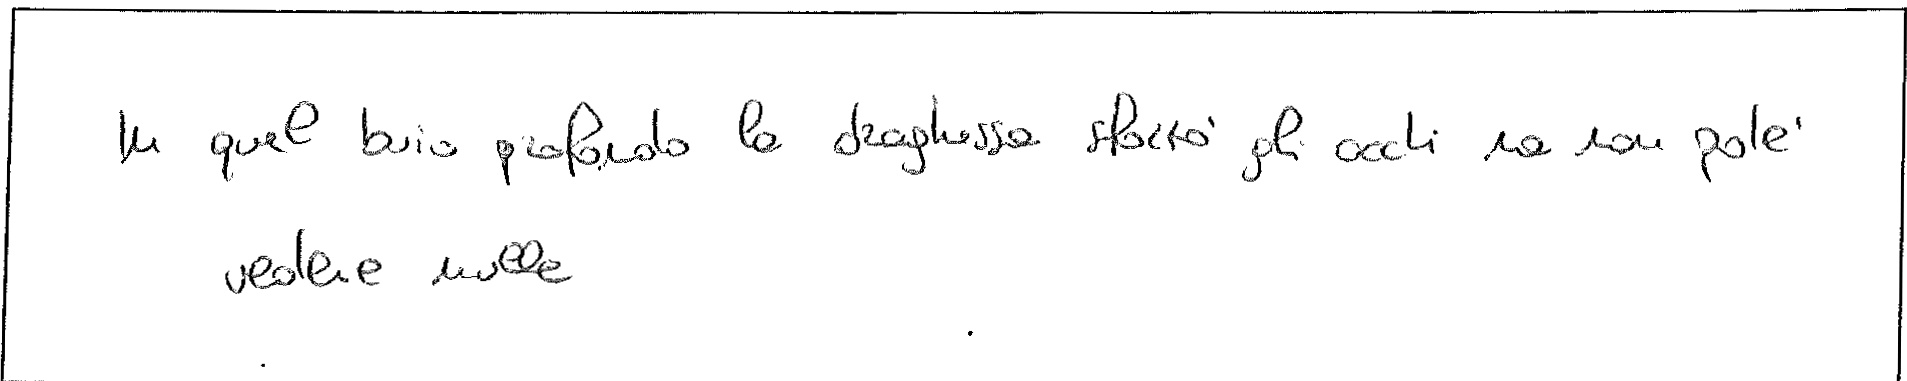 In quel buio profondo la draghessa sforzò gli occhi ma non poté
vedere nulla